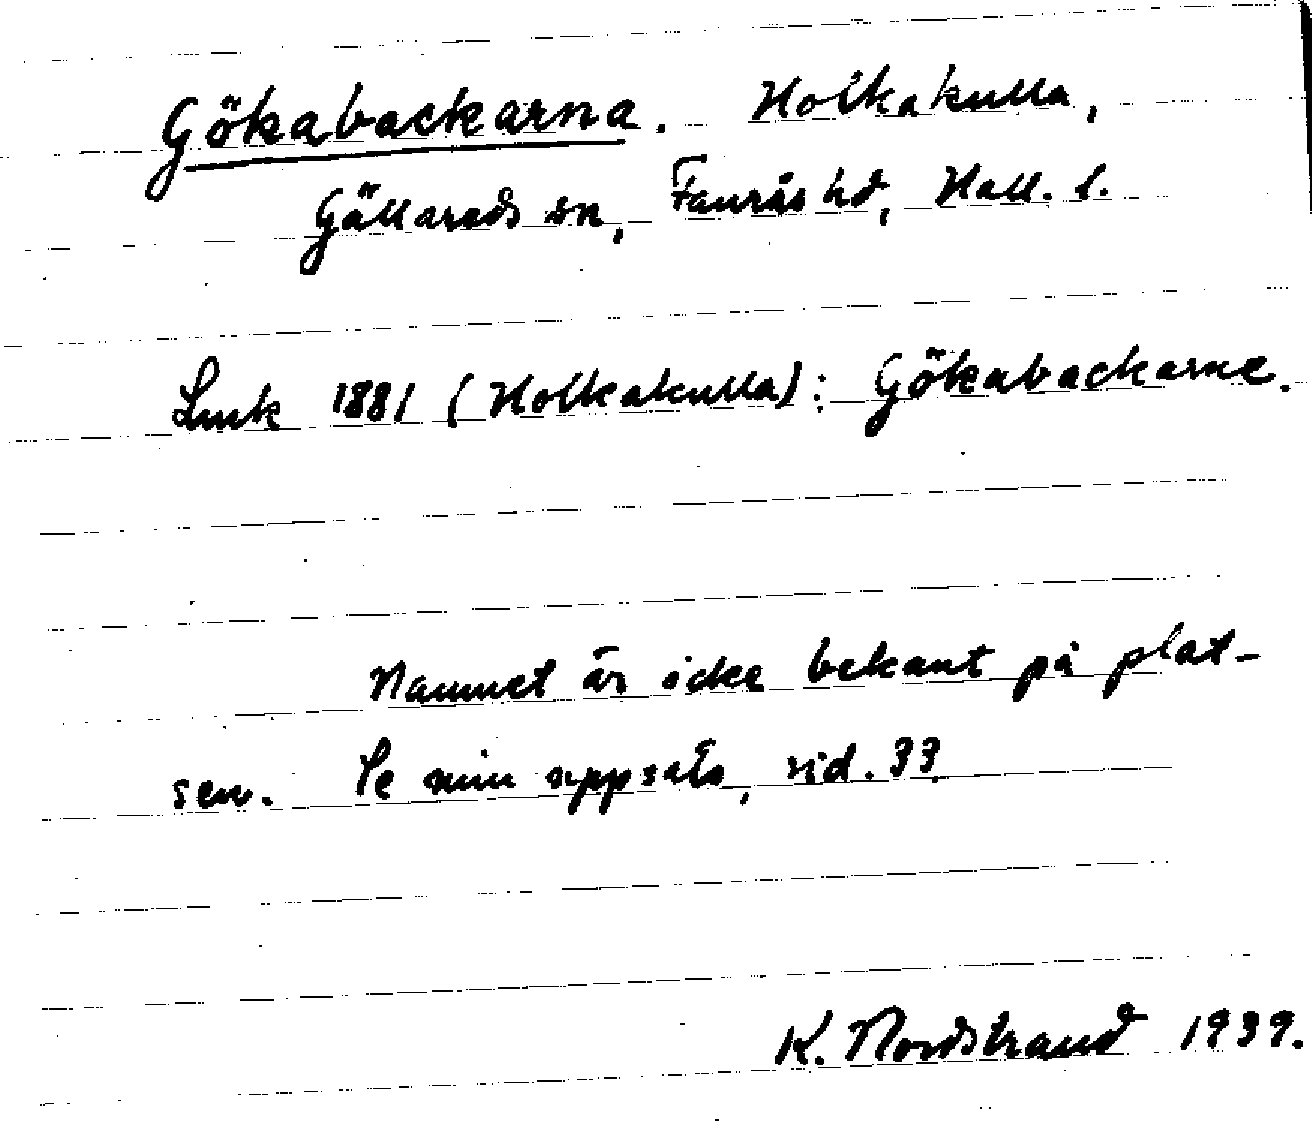 Gökabackarna. Holkakulla,
Gällareds sn, Faurås hd, Hall. l.
Lmk 1881 (Holkakulla): Gökabackarne.
Namnet är icke bekant på plat-
sen. Se min uppsats, sid. 33.
K. Nordstrand 1939.